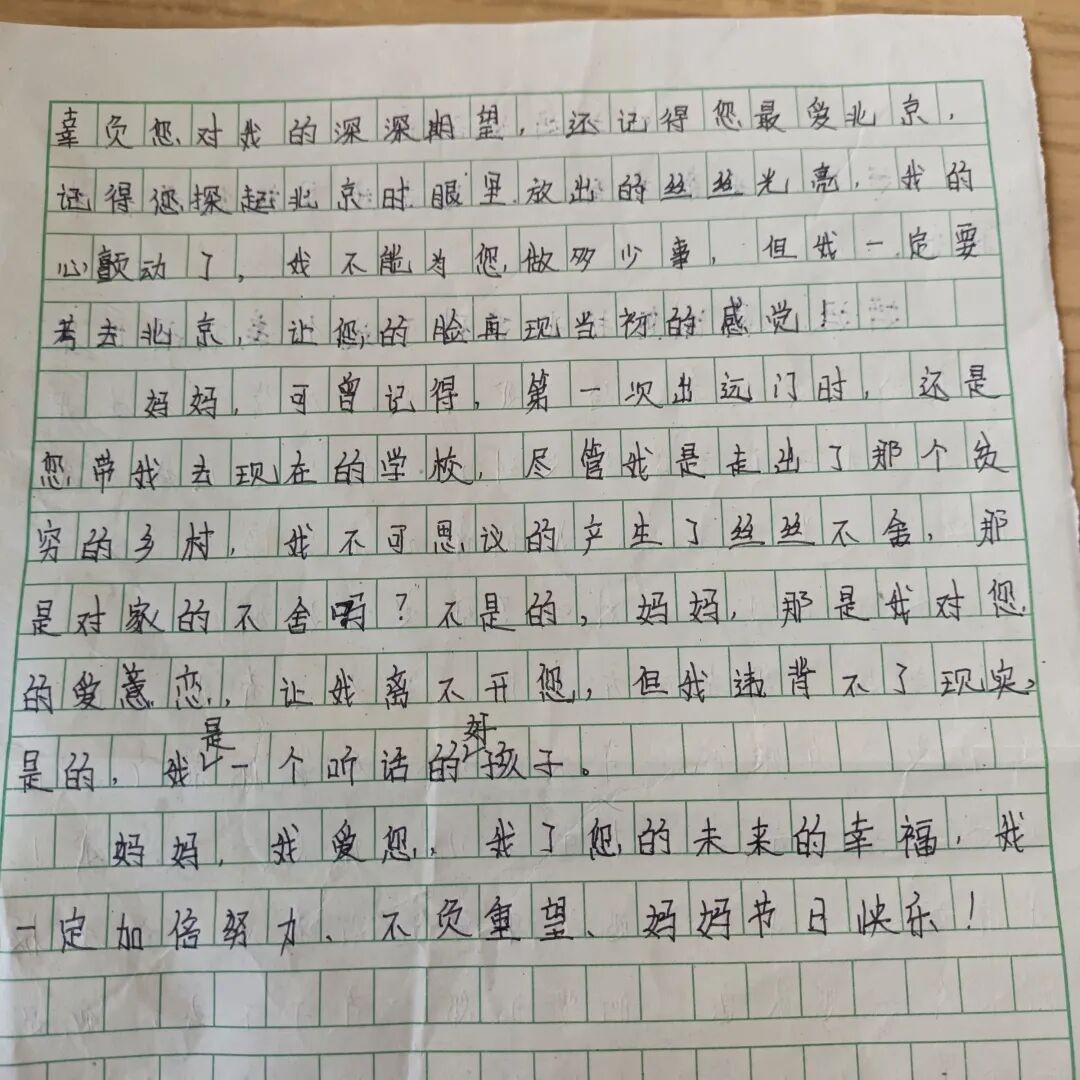 幸负您对我的深深期望，还记得您最爱北京，
记得您探起北京时眼里放出的丝丝光亮，我的
心颤动了，我不能为您做多少事，但我一定要
考去北京，让您的脸再现当初的感觉！
妈妈，可曾记得，第一次出远门时，还是
您带我去现在的学校，尽管我是走出了那个贫
穷的乡村，我不可思议的产生了丝丝不舍，那
是对家的不舍吗？不是的，妈妈，那是我对您
的爱意恋，让我离不开您，但我违背不了现实，
是的，我是一个听话的好孩子。
妈妈，我爱您，我了您的未来的幸福，我
一定加倍努力、不负重望、妈妈节日快乐！